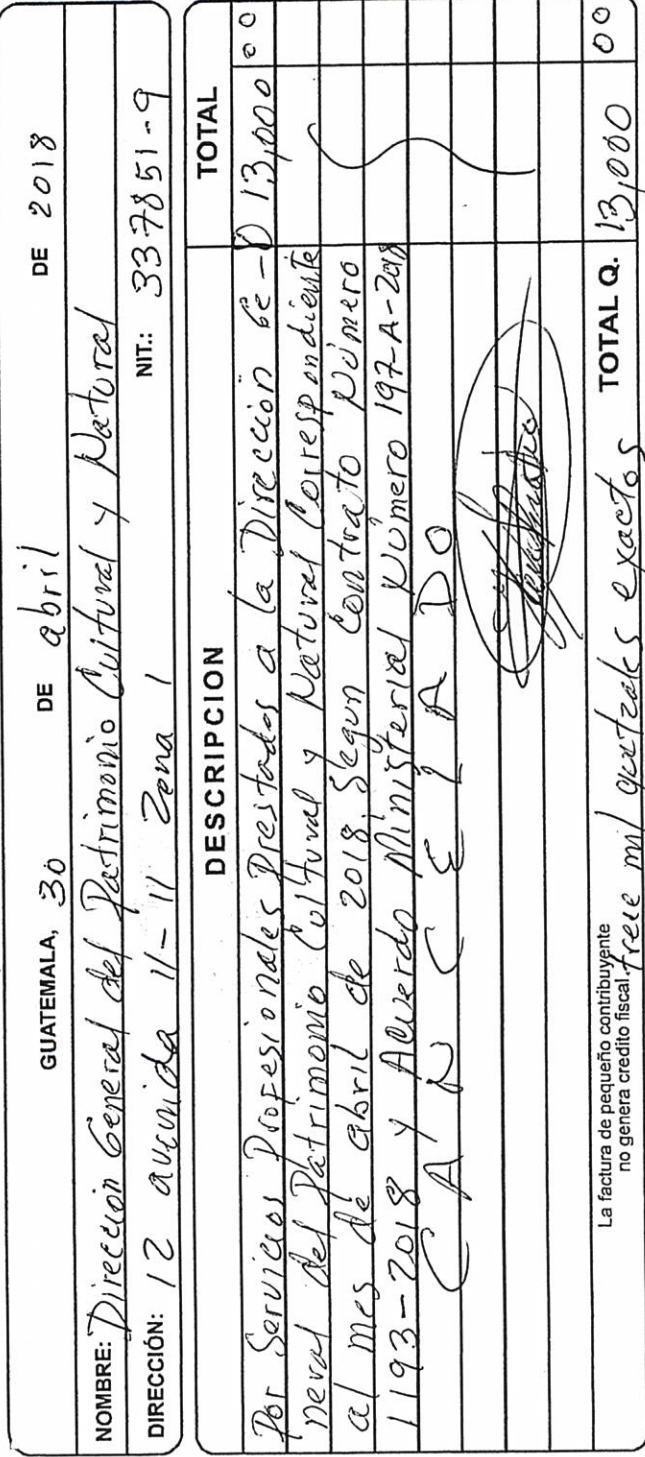 GUATEMALA, 30 DE abril DE 2018
NOMBRE: Dirección General del Patrimonio Cultural y Natural
DIRECCIÓN: 12 avenida 11-11 Zona 1 NIT.: 337851-9
DESCRIPCION TOTAL
Por Servicios Profesionales Prestados a la Dirección Ge- Q 13,000 00
neral del Patrimonio Cultural y Natural Correspondiente
al mes de abril de 2018. Segun Contrato Número
1193-2018 y Acuerdo Ministerial Número 197-A-2018
C A N C E L A D O
La factura de pequeño contribuyente
no genera credito fiscal. trece mil quetzales exactos TOTAL Q. 13,000 00